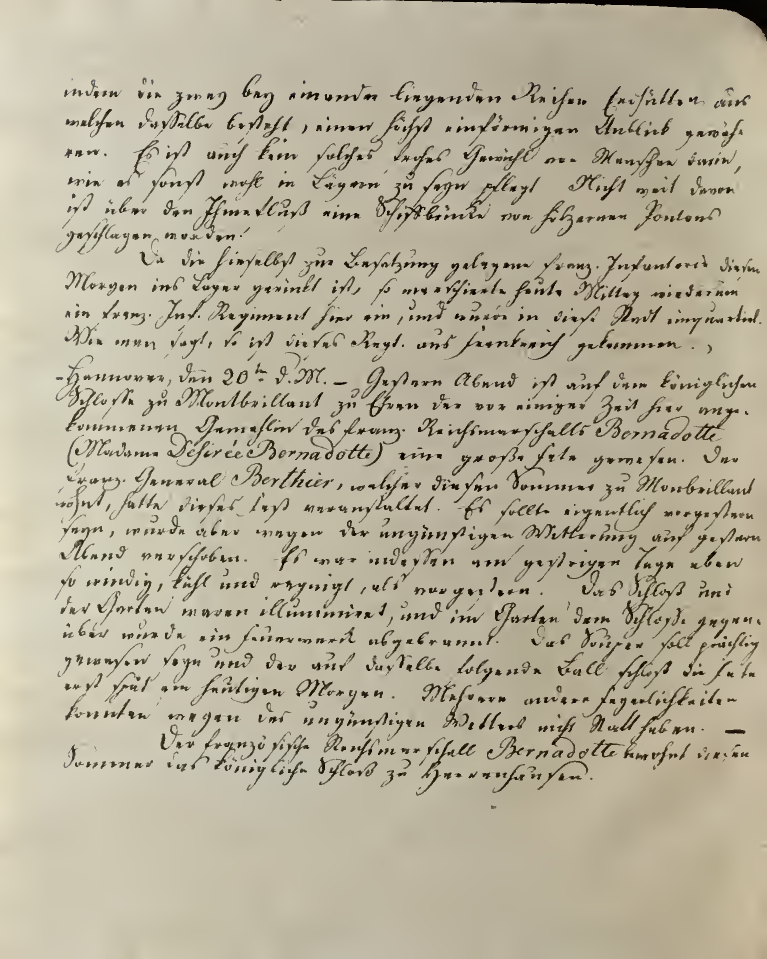 indem die zwey bey einander liegenden Reihen Erdhütten aus
welchen dasselbe besteht, einen höchst einförmigen Anblick gewäh-
ren. Es ist auch kein solches frohes Gewühl von Menschen darin,
wie es sonst wohl in Lägern zu seyn pflegt Nicht weit davon
ist über den Ihmefluß eine Schiffbrücke von hölzernen Pontons
geschlagen worden.
Da die hieselbst zur Besatzung gelegene franz. Infanterie diesen
Morgen ins Lager gerückt ist, so marschierte heute Mittag wiederum
ein franz. Inf. Regiment hier ein, und wurde in diese Stadt einquartirt.
Wie man sagt, so ist dieses Regt. aus Frankreich gekommen.
Hannover, den 20t. d. M. – Gestern Abend ist auf dem königlichen
Schlosse zu Montbrillant zu Ehren der vor einiger Zeit hier ange-
kommenen Gemahlin des franz. Reichsmarschalls Bernadotte
(Madame Désirée Bernadotte) eine große Fete gewesen. Der
franz. General Berthier, welcher diesen Sommer zu Monbrillant
wohnt, hatte dieses Fest veranstaltet. Es sollte eigentlich vorgestern
seyn, wurde aber wegen der ungünstigen Witterung auf gestern
Abend verschoben. Es war indessen am gestrigen Tage eben
so windig, kühl und regnigt, als vorgestern. Das Schloß und
der Garten waren illuminiret, und im Garten dem Schlosse gegen-
über wurde ein Feuerwerk abgebrannt. Das Souper soll prächtig
gewesen seyn und der auf dasselbe folgende Ball schloß die Fete
erst spät am heutigen Morgen. Mehrere andere Feyerlichkeiten
konnten wegen des ungünstigen Wetters nicht Statt haben. –
Der französische Reichsmarschall Bernadotte bewohnt diesen
Sommer das königliche Schloß zu Herrenhausen.